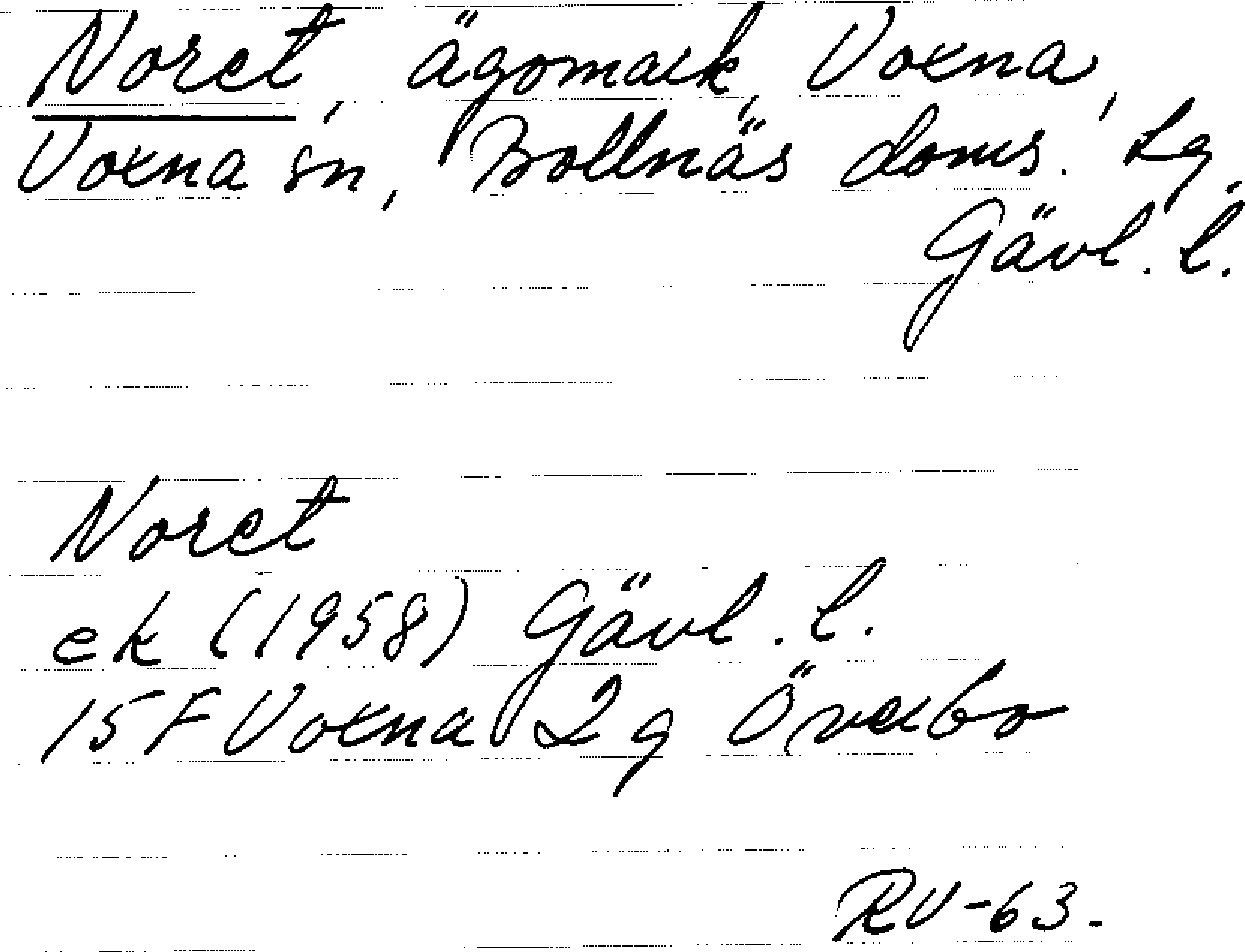 Noret, ägomark, Voxna,
Voxna sn, Bollnäs doms. lg.
Gävl. l.
Noret
ek (1958) Gävl. l.
15F Voxna 2 g Överbo
RV-63.